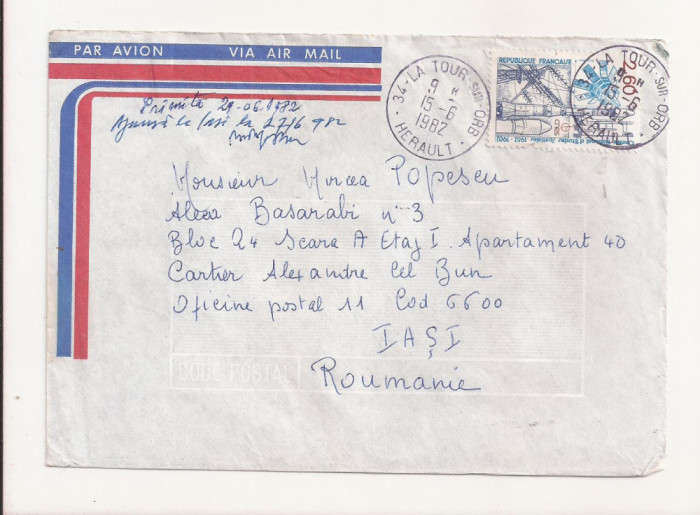 PAR AVION VIA AIR MAIL
Primită 29-06.1982
Ajunsă la Iasi la 27/6 982
34-LA TOUR-sur-ORB
9 H
15-6
1982
HERAULT
REPUBLIQUE FRANÇAISE
34-LA TOUR-sur-ORB
15-6
1982
HERAULT
d'Etudes Spatiales 1962-1982
Monsieur Mircea Popescu
Aleea Basarabi n° 3
Bloc 24 Scara A Etaj I. Apartament 40
Cartier Alexandre Cel Bun
Oficine postal 11 Cod 6600
IAŞI
Roumanie
CODE POSTAL